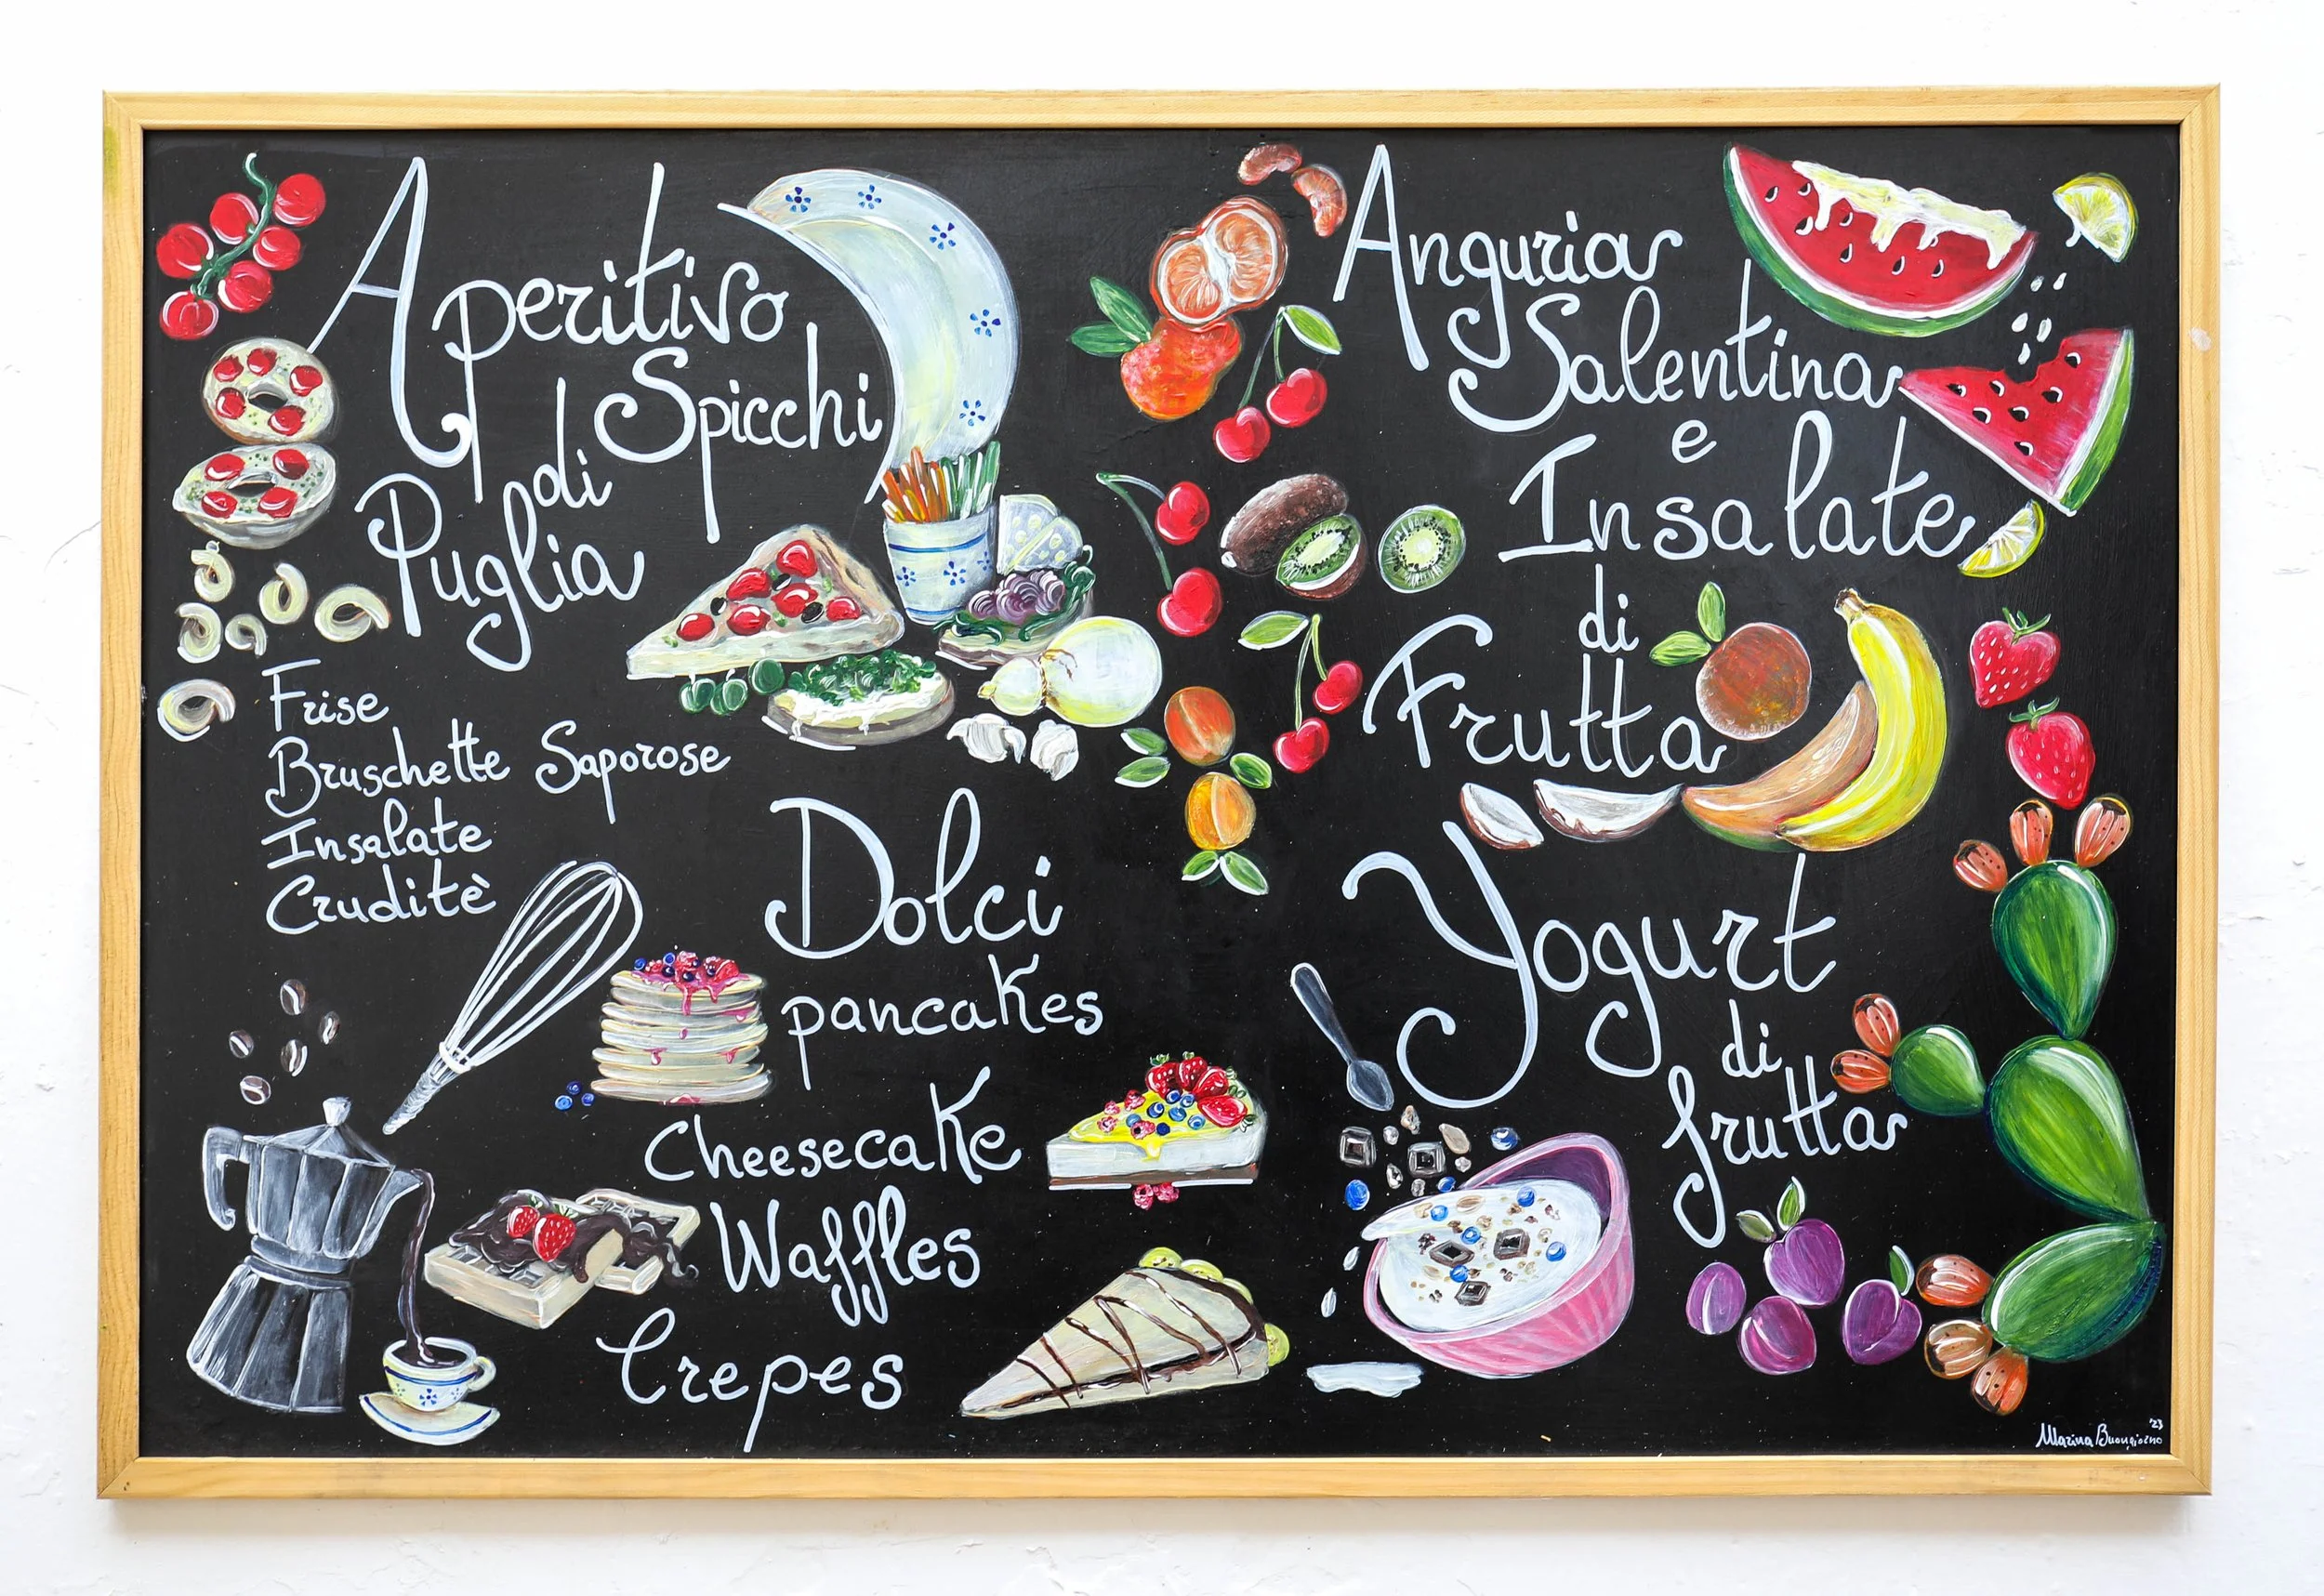 Aperitivo
di Spicchi
Puglia
Frise
Bruschette Saporose
Insalate
Cruditè
Dolci
pancakes
Cheesecake
Waffles
Crepes
Anguria
Salentina
e
Insalate
di
Frutta
Yogurt
di
frutta
Marina Buongiorno '23